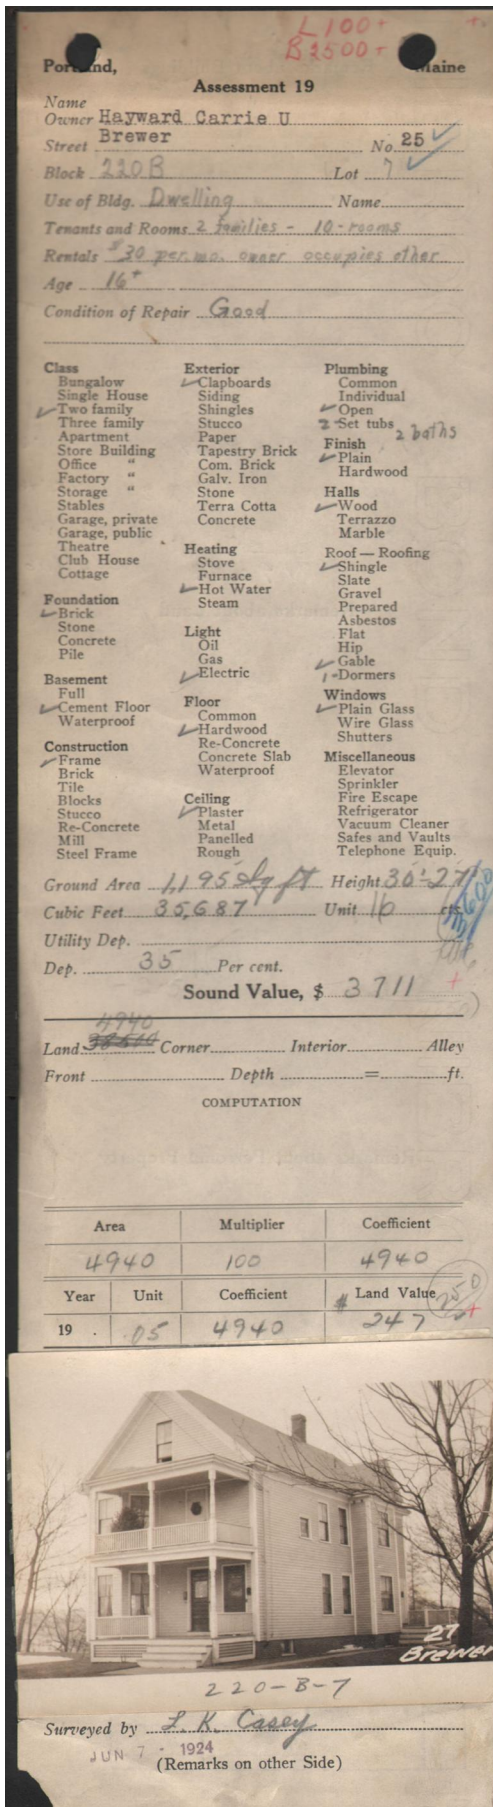 L 100 +
B 2500 +
Portland, Maine
Assessment 19
Name
Owner Hayward Carrie U
Street Brewer No. 25
Block 220B Lot 7
Use of Bldg. Dwelling Name
Tenants and Rooms 2 families - 10-rooms
Rentals $30 per. mo. owner occupies other
Age 16+
Condition of Repair Good
Class
Bungalow
Single House
✓ Two family
Three family
Apartment
Store Building
Office "
Factory "
Storage "
Stables
Garage, private
Garage, public
Theatre
Club House
Cottage
Foundation
✓ Brick
Stone
Concrete
Pile
Basement
Full
✓ Cement Floor
Waterproof
Construction
✓ Frame
Brick
Tile
Blocks
Stucco
Re-Concrete
Mill
Steel Frame
Exterior
✓ Clapboards
Siding
Shingles
Stucco
Paper
Tapestry Brick
Com. Brick
Galv. Iron
Stone
Terra Cotta
Concrete
Heating
Stove
Furnace
✓ Hot Water
Steam
Light
Oil
Gas
✓ Electric
Floor
Common
✓ Hardwood
Re-Concrete
Concrete Slab
Waterproof
Ceiling
✓ Plaster
Metal
Panelled
Rough
Plumbing
Common
Individual
✓ Open
2 Set tubs 2 baths
Finish
✓ Plain
Hardwood
Halls
✓ Wood
Terrazzo
Marble
Roof — Roofing
✓ Shingle
Slate
Gravel
Prepared
Asbestos
Flat
Hip
✓ Gable
1 - Dormers
Windows
✓ Plain Glass
Wire Glass
Shutters
Miscellaneous
Elevator
Sprinkler
Fire Escape
Refrigerator
Vacuum Cleaner
Safes and Vaults
Telephone Equip.
Ground Area 1,195 Sq ft Height 30'-27'
Cubic Feet 35,687 Unit 16 cts.
Utility Dep.
Dep. 35 Per cent.
Sound Value, $ 3711 +
4940
Land Corner Interior Alley
Front Depth = ft.
COMPUTATION
Area Multiplier Coefficient
4940 100 4940
Year Unit Coefficient Land Value 250
19 . .05 4940 $ 247 +
27
Brewer
220-B-7
Surveyed by L. K. Casey
JUN 7 - 1924
(Remarks on other Side)